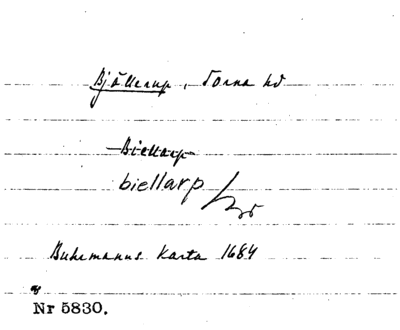 Bjällerup, Torna hd
Biellarp
biellarp
Buhrmanns Karta 1684
Nr 5830.